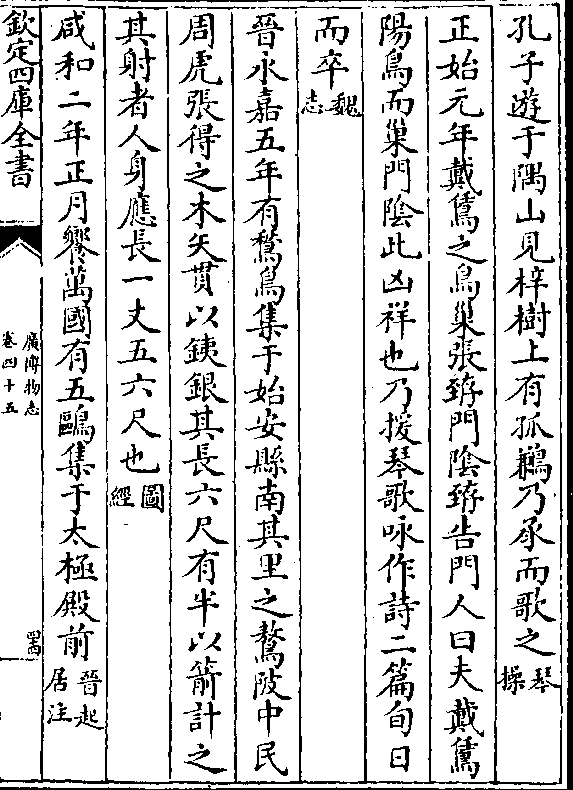 孔子遊于隅山見梓樹上有孤鶼乃承而歌之琴操
正始元年戴鵀之鳥巢張臶門陰臶告門人曰夫戴鵀
陽鳥而巢門陰此凶祥也乃援琴歌咏作詩二篇旬日
而卒魏志
晉永嘉五年有鷔鳥集于始安縣南其里之鷔陂中民
周虎張得之木矢貫以銕銀其長六尺有半以箭計之
其射者人身應長一丈五六尺也圖經
咸和二年正月饗萬國有五鷗集于太極殿前晉起居注
欽定四庫全書
廣博物志
卷四十五